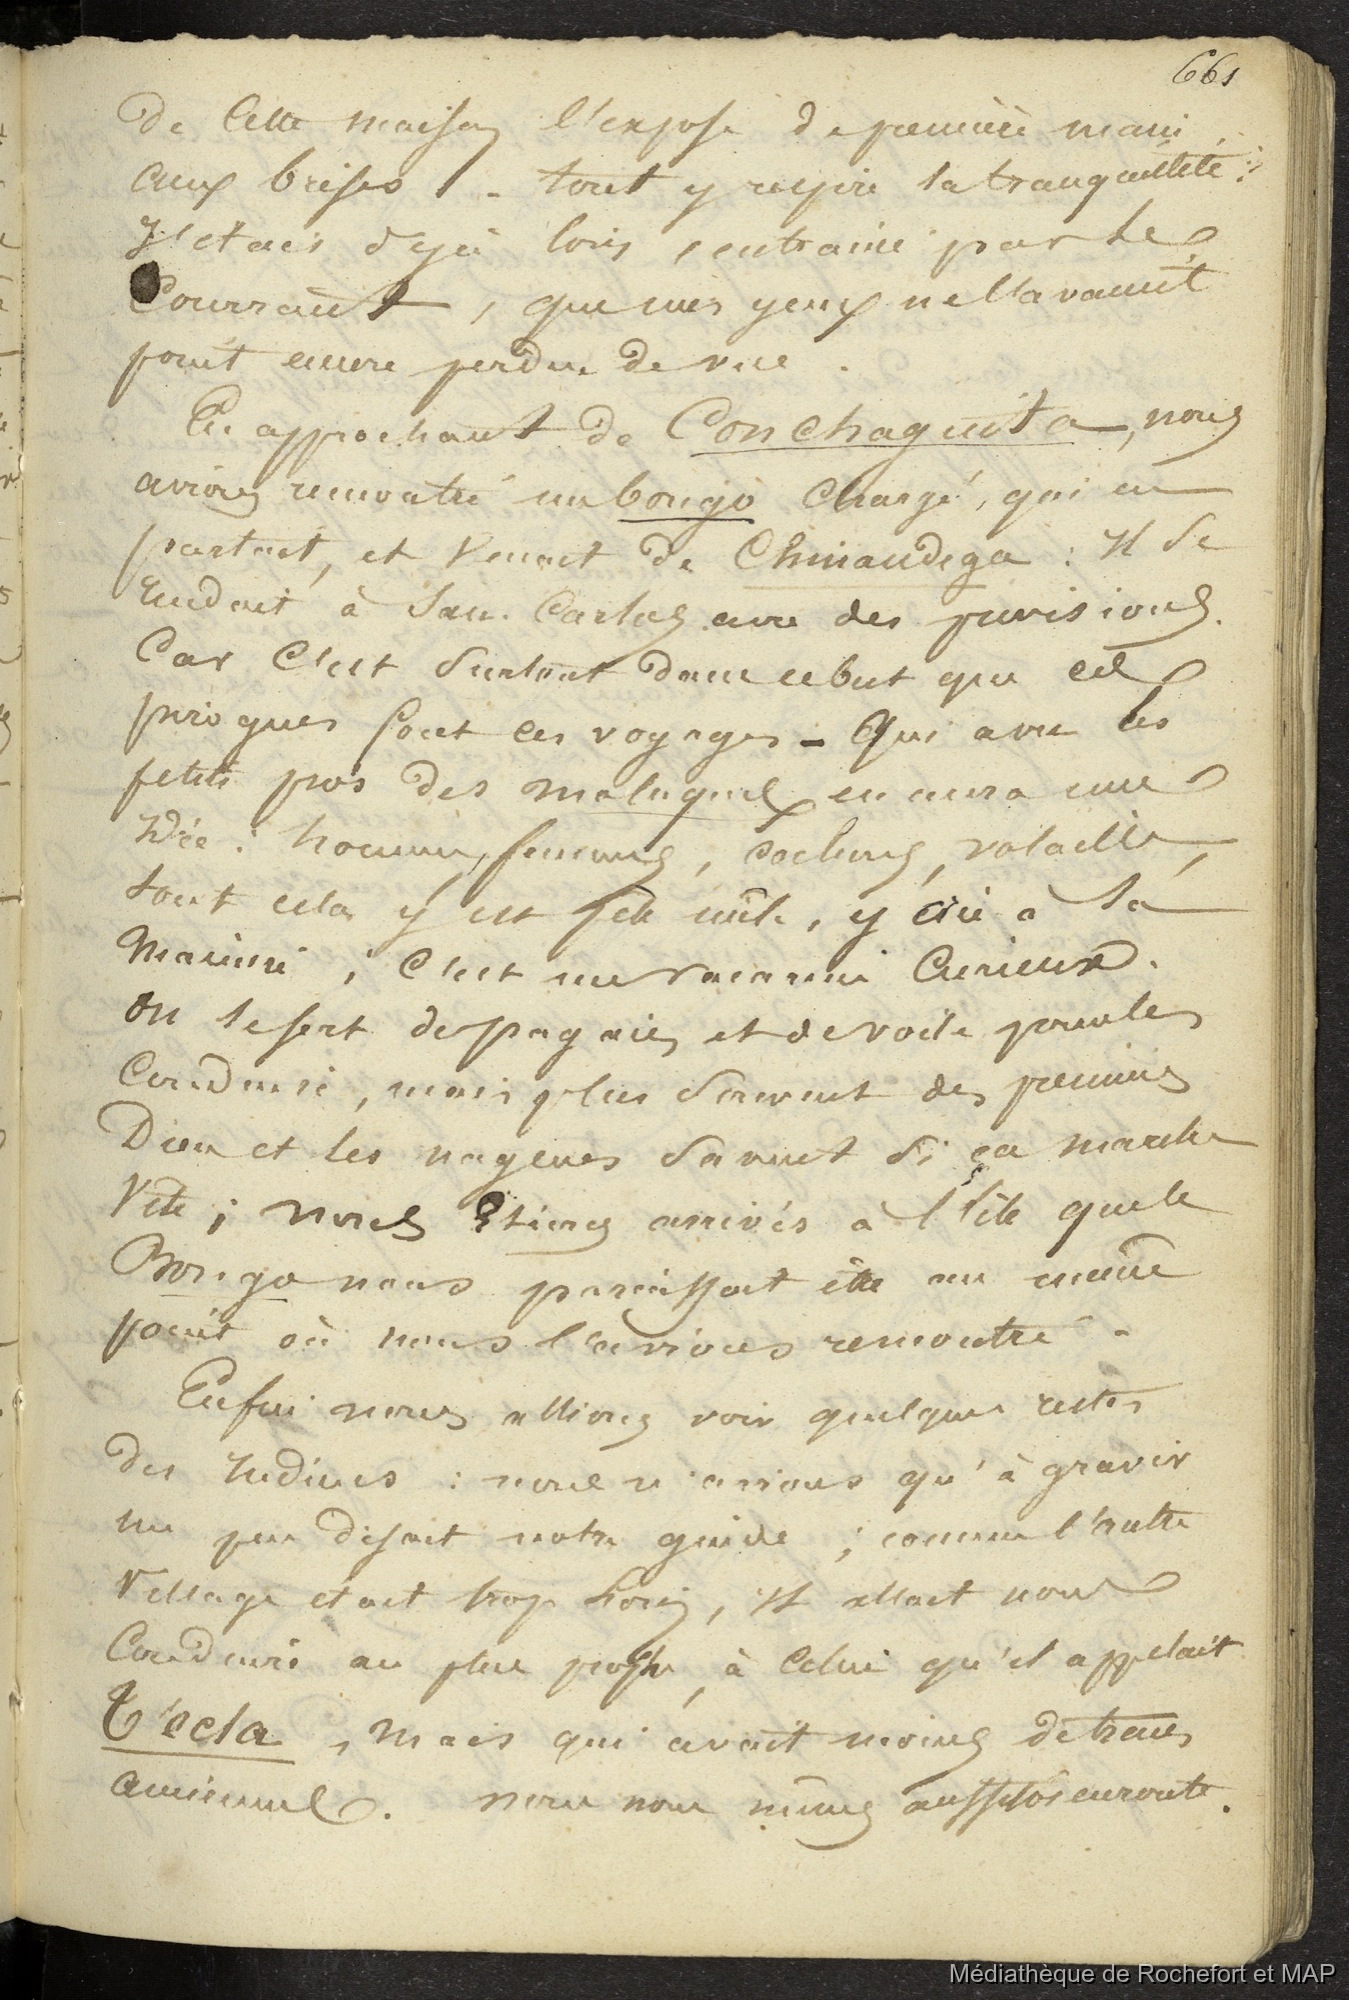 661
de cette maison l'expose de première main
aux brises - tout y respire la tranquillité :
J'étais déjà loin, entrainé par le
Courrant, que mes yeux ne l'avaient
point encore perdue de vue.
En approchant de Conchaguita, nous
avions rencontré un bongo chargé, qui en
partait, et venait de Chinandega : Il se
rendait à San. Carlos avec des provisions.
Car c'est surtout dans ce but que ces
pirogues font ces voyages - Qui a vu les
petits pros des malaques en aura une
idée : hommes, femmes, cochons, volaille,
tout cela y est pêle mêle, y crie à sa
manière ; c'est un vacarme curieux.
On se sert de pagaies et de voile pour les
Conduire, mais plus souvent des premières
Dieu et les nageurs savent si ça marche
vite ; nous étions arrivés à l'île que le
Bongo nous paraissait être au même
point où nous l'avions rencontré -
Enfin nous allions voir quelques restes
des Indiens : nous n'avions qu'à gravir
un peu disait notre guide ; comme l'autre
village était trop loin, il allait nous
Conduire au plus proche, à celui qu'il appelait
Técla, mais qui avait moins de traces
anciennes. nous nous mîmes aussitôt en route.
Médiathèque de Rochefort et MAP